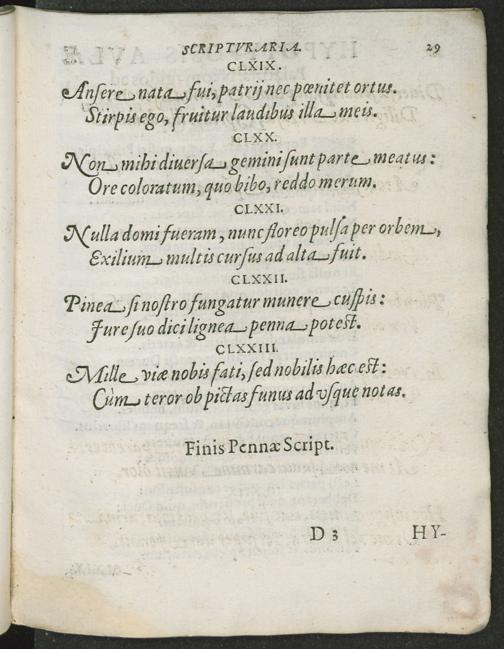 SCRIPTVRARIA. 29
CLXIX.
Ansere nata fui, patrij nec pœnitet ortus.
Stirpis ego, fruitur laudibus illa meis.
CLXX.
Non mihi diuersa gemini sunt parte meatus:
Ore coloratum, quo bibo, reddo merum.
CLXXI.
Nulla domi fueram, nunc floreo pulsa per orbem,
Exilium multis cursus ad alta fuit.
CLXXII.
Pinea si nostro fungatur munere cuspis:
Jure suo dici lignea penna potest.
CLXXIII.
Mille viæ nobis fati, sed nobilis hæc est:
Cùm teror ob pictas funus ad vsque notas.
Finis Pennæ Script.
D 3 HY-